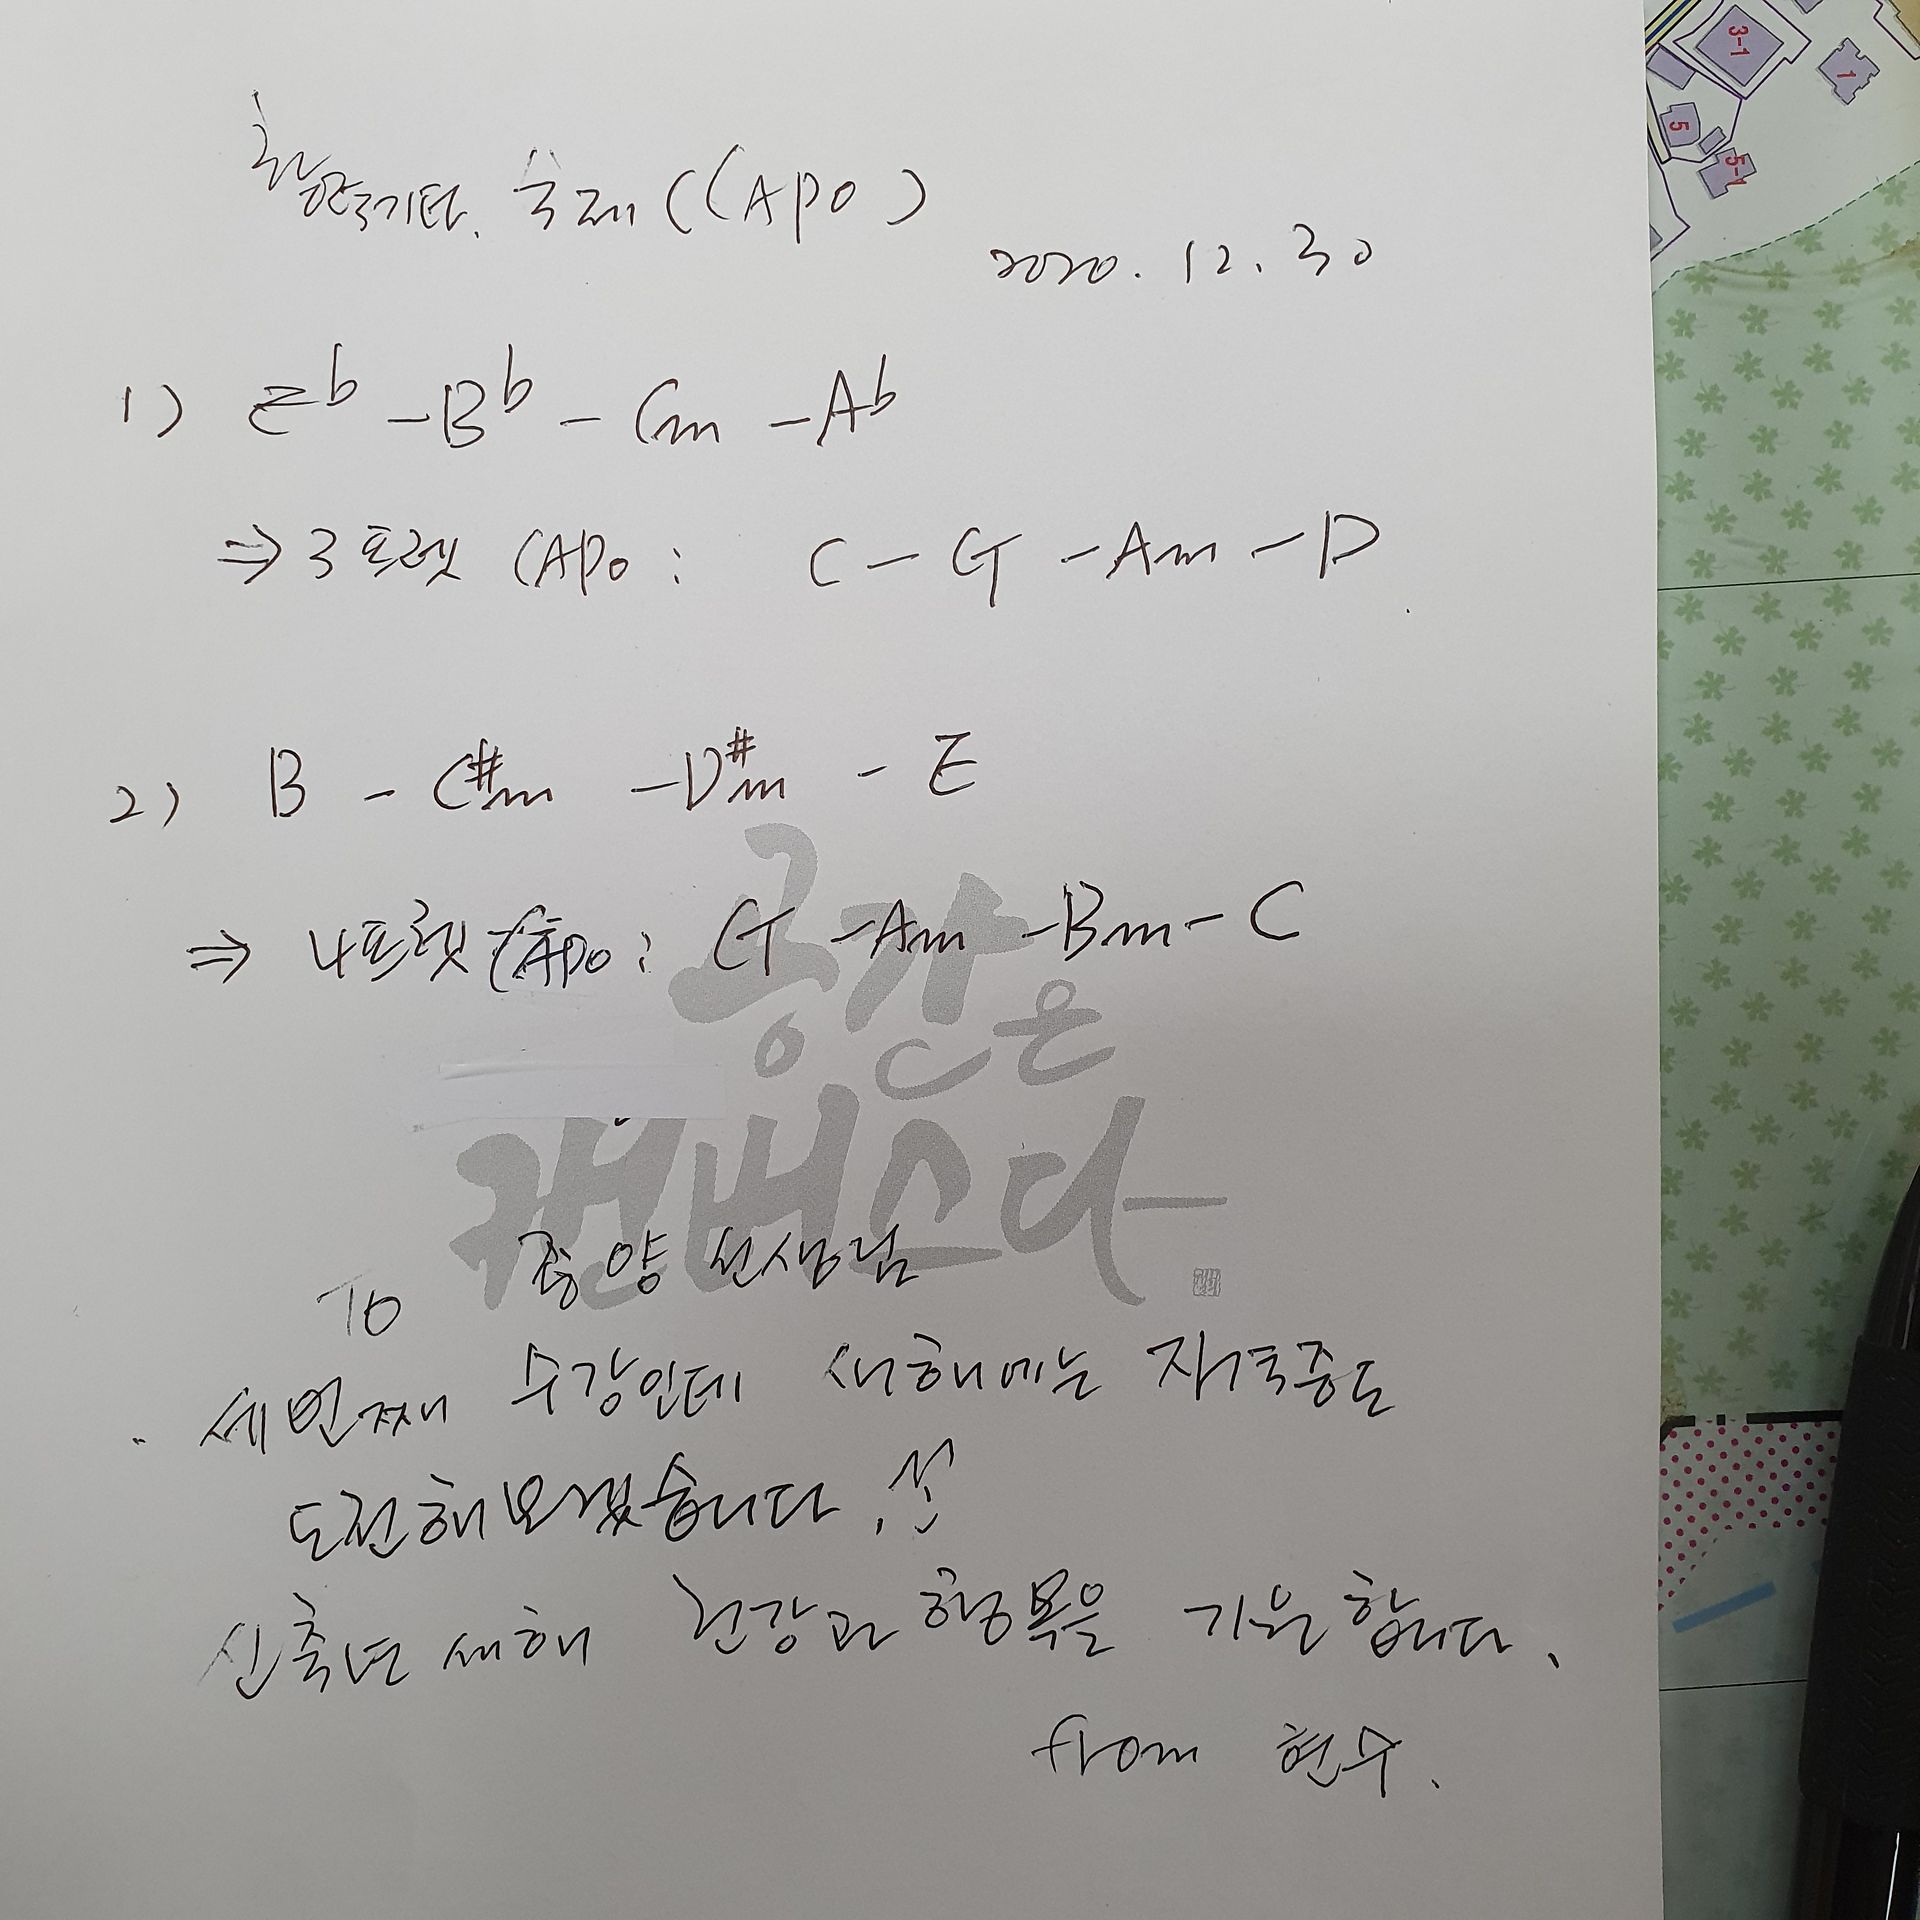 숙제 (CAPO)
2020. 12. 30
1) E♭ - B♭ - Cm - A♭
⇒ 3프렛 CAPO : C - G - Am - D
2) B - C#m - D#m - E
⇒ 4프렛 CAPO : G - Am - Bm - C
공간은
캔버스다
To 종양 선생님
세번째 수강인데 새해에는 자격증도
도전해보겠습니다.
신축년 새해 건강과 행복을 기원합니다.
from 현수.
3-1
1
5
5-1